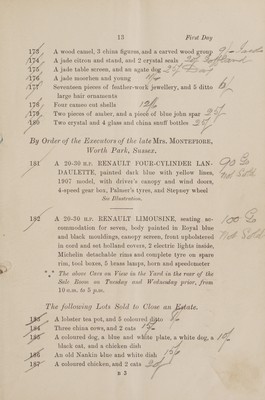 13 First Day
173 A wood camel, 3 china figures, and a carved wood group
174 A jade citron and stand, and 2 crystal seals
175 A jade table screen, and an agate dog
176 A jade moorhen and young
177 Seventeen pieces of feather-work jewellery, and 5 ditto
large hair ornaments
178 Four cameo cut shells
179 Two pieces of amber, and a piece of blue john spar
180 Two crystal and 4 glass and china snuff bottles
By Order of the Executors of the late Mrs. MONTEFIORE,
Worth Park, SUSSEX.
181 A 20-30 H.P. RENAULT FOUR-CYLINDER LAN-
DAULETTE, painted dark blue with yellow lines,
1907 model, with driver's canopy and wind doors,
4-speed gear box, Palmer's tyres, and Stepney wheel
See Illustration.
182 A 20-30 H.P. RENAULT LIMOUSINE, seating ac-
commodation for seven, body painted in Royal blue
and black mouldings, canopy screen, front upholstered
in cord and set holland covers, 2 electric lights inside,
Michelin detachable rims and complete tyre on spare
rim, tool boxes, 5 brass lamps, horn and speedometer
*** The above Cars on View in the Yard in the rear of the
Sale Room on Tuesday and Wednesday prior, from
10 a.m. to 5 p.m.
The following Lots Sold to Close an Estate.
183 A lobster tea pot, and 5 coloured ditto
184 Three china cows, and 2 cats
185 A coloured dog, a blue and white plate, a white dog, a
black cat, and a chicken dish
186 An old Nankin blue and white dish
187 A coloured chicken, and 2 cats
B 3